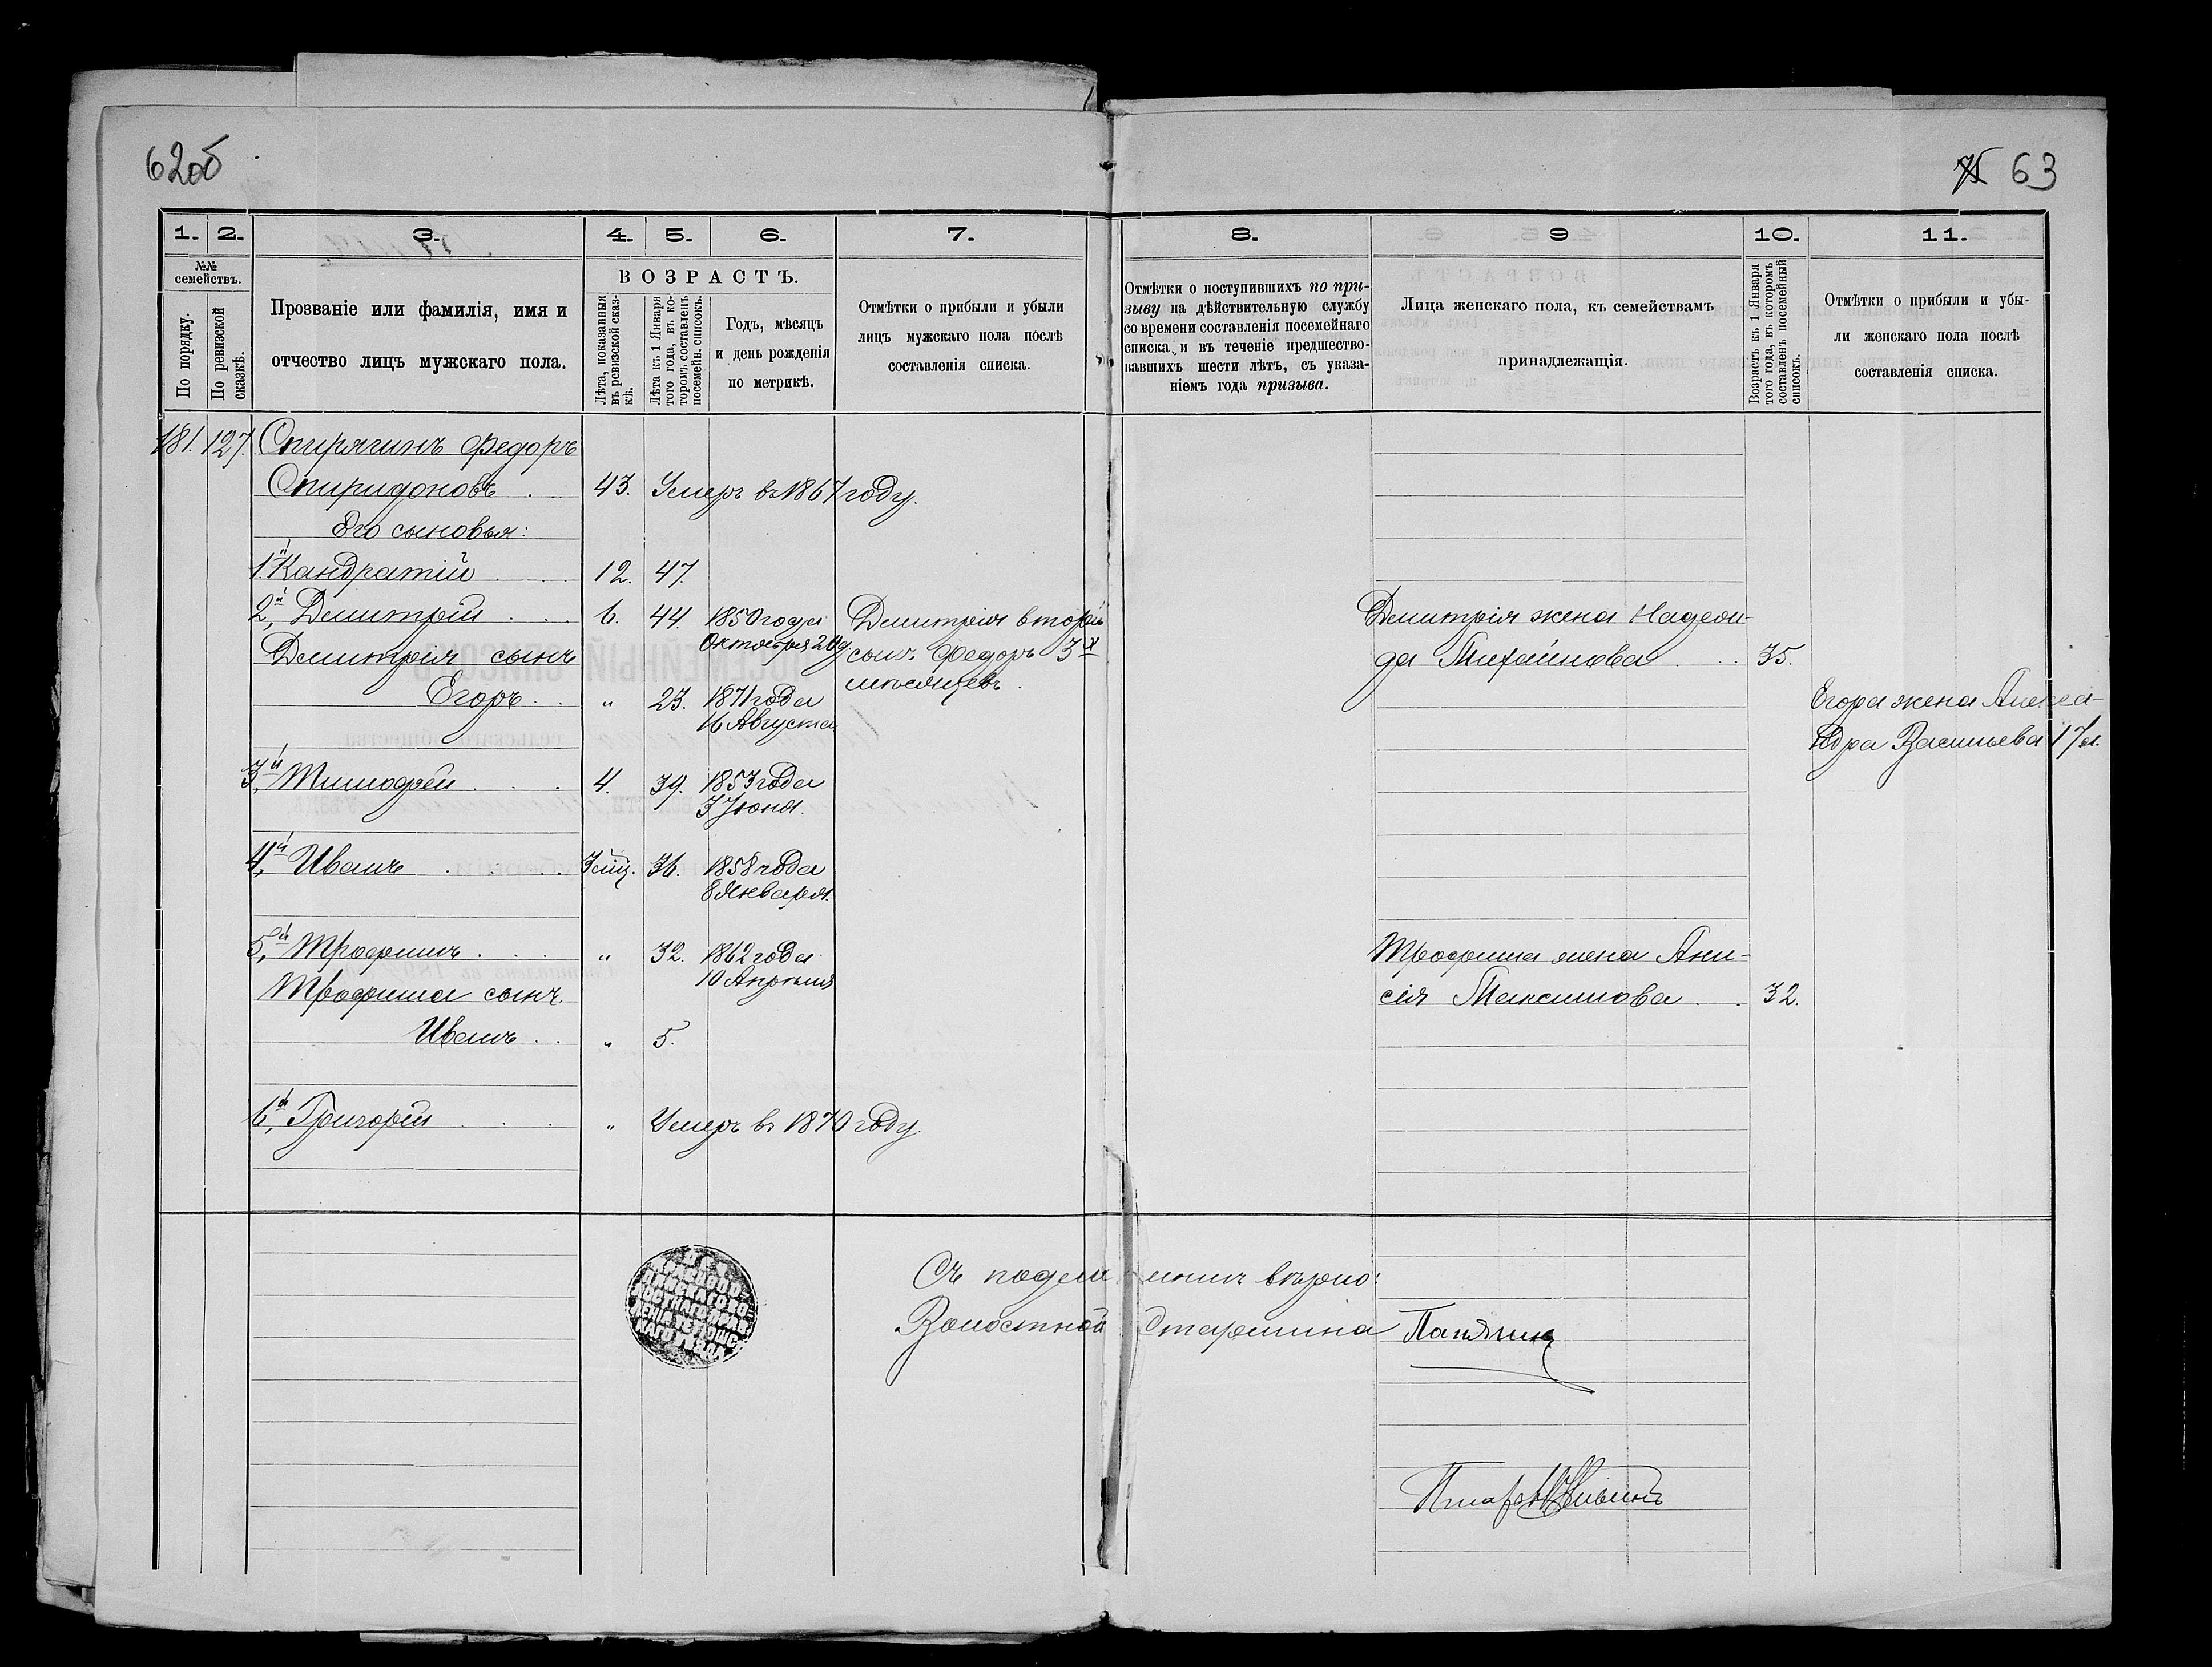 62об
75 63
1. 2. 3. 4. 5. 6. 7. 8. 9 10. 11.
№№ семействъ.
По порядку.
По ревизской сказкѣ.
Прозваніе или фамилія, имя и
отчество лицъ мужскаго пола.
ВОЗРАСТЪ.
Лѣта, показанныя
въ ревизской сказ-
кѣ.
Лѣта къ 1 Января
того года, въ ко-
торомъ составленъ
посемейн. списокъ.
Годъ, мѣсяцъ
и день рожденія
по метрикѣ.
Отмѣтки о прибыли и убыли
лицъ мужскаго пола послѣ
составленія списка.
Отмѣтки о поступившихъ по при-
зыву на дѣйствительную службу
со времени составленія посемейнаго
списка, и въ теченіе предшество-
вавшихъ шести лѣтъ, съ указа-
ніемъ года призыва.
Лица женскаго пола, къ семействамъ
принадлежащія.
Возрастъ къ 1 Января
того года, въ которомъ
составленъ посемейный
списокъ.
Отмѣтки о прибыли и убы-
ли женскаго пола послѣ
составленія списка.
181. 127. Спирягинъ Федоръ
Спиридоновъ . . 43. Умеръ въ 1867 году.
Его сыновья:
1й Кандратій . . . 12. 47.
2й, Дмитрій . . . 6. 44. 1850 года Дмитрія второй Дмитрія жена Надеж-
Дмитрія сынъ Октября 24 д. сынъ Федоръ 3х да Михайлова . . . 35.
Егоръ . . „ 23. 1871 года мѣсяцевъ. Егора жена Алекса-
16 Августа ндра Васильева 17 л.
3й, Тимофей . . . 4. 39. 1853 года
3 Іюня.
4й, Иванъ . . . . 3 мѣц. 36. 1858 года
8 Января.
5й, Трофимъ . . . „ 32. 1862 года Трофима жена Ани-
10 Апрѣля
Трофима сынъ сія Максимова . . 32.
Иванъ . . „ 5.
6й, Григорій . . . „ Умеръ въ 1870 году.
Съ подлиннымъ вѣрно:
Волостной Старшина Папягинъ
Писарь